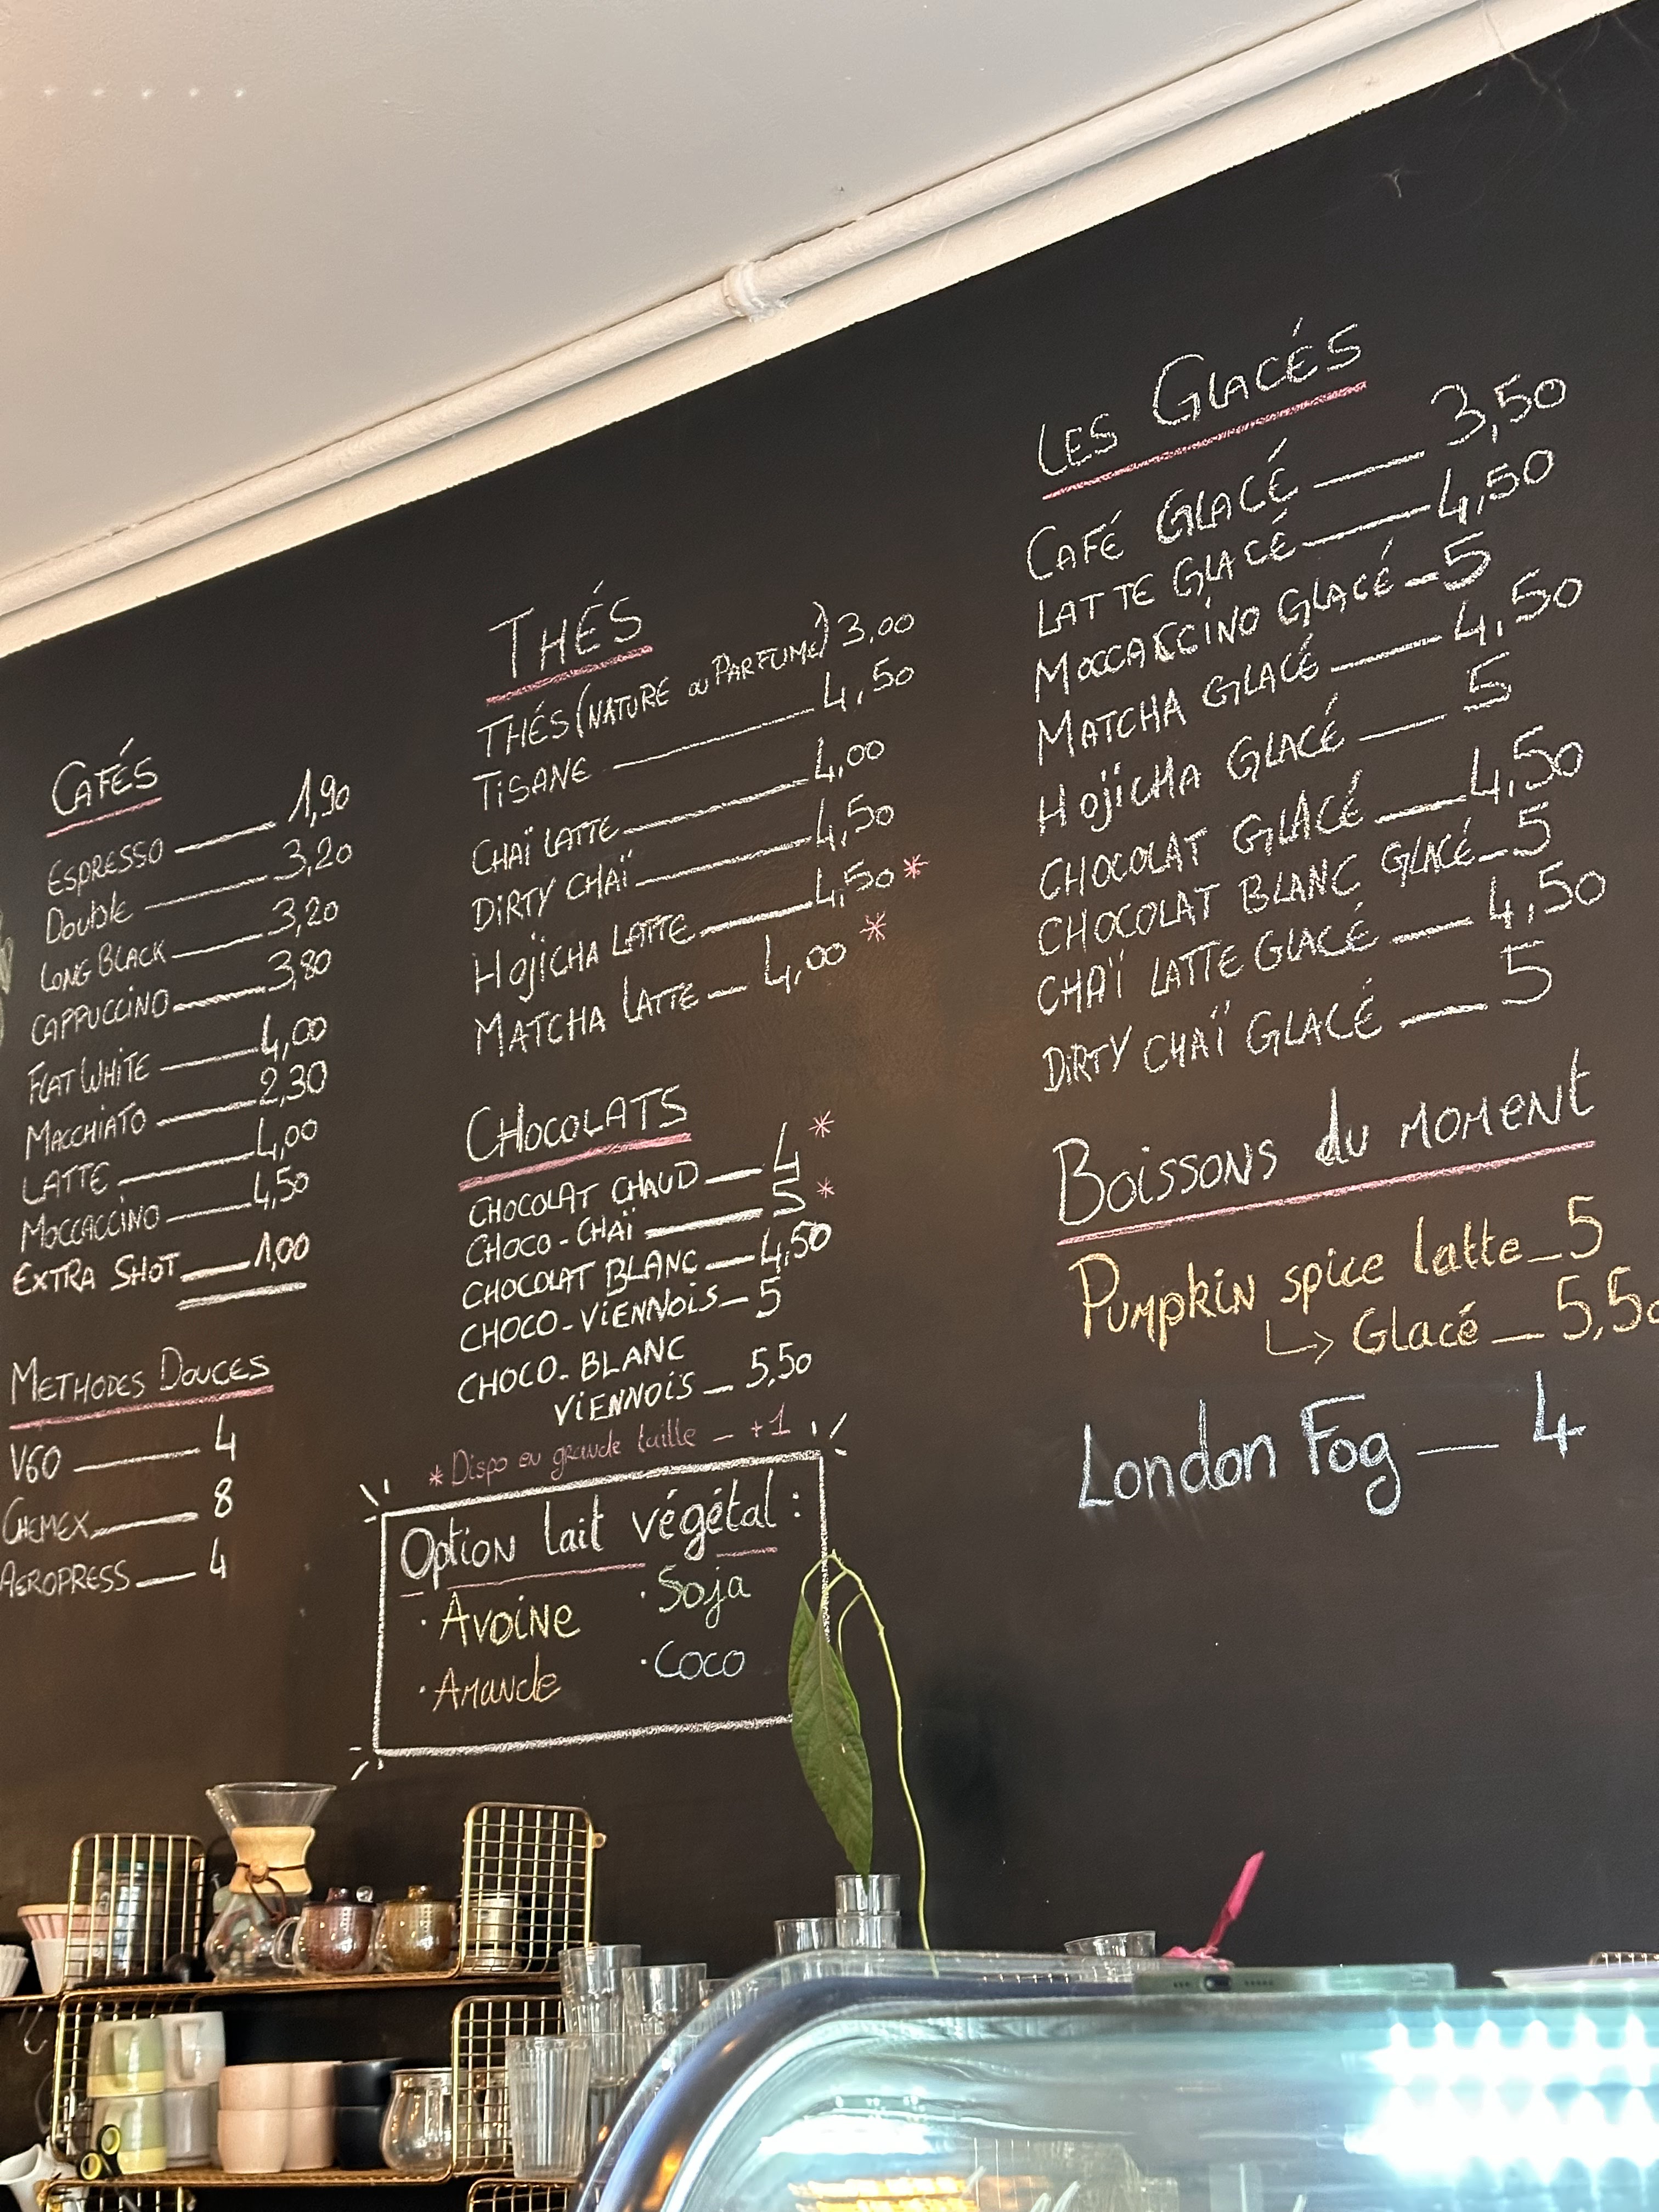 CAFÉS
ESPRESSO 1,90
DOUBLE 3,20
LONG BLACK 3,20
CAPPUCCINO 3,80
FLAT WHITE 4,00
MACCHIATO 2,30
LATTE 4,00
MOCCACCINO 4,50
EXTRA SHOT 1,00
METHODES DOUCES
V60 4
CHEMEX 8
AEROPRESS 4
THÉS
THÉS (NATURE OU PARFUMÉ) 3,00
TISANE 4,50
CHAÏ LATTE 4,00
DIRTY CHAÏ 4,50
HOJICHA LATTE 4,50 *
MATCHA LATTE 4,00 *
CHOCOLATS
CHOCOLAT CHAUD 4 *
CHOCO-CHAÏ 5 *
CHOCOLAT BLANC 4,50
CHOCO-VIENNOIS 5
CHOCO-BLANC
VIENNOIS 5,50
* Dispo en grande taille - +1
Option lait végétal :
· Avoine · Soja
· Amande · Coco
LES GLACÉS
CAFÉ GLACÉ 3,50
LATTE GLACÉ 4,50
MOCCACCINO GLACÉ 5
MATCHA GLACÉ 4,50
HOJICHA GLACÉ 5
CHOCOLAT GLACÉ 4,50
CHOCOLAT BLANC GLACÉ 5
CHAÏ LATTE GLACÉ 4,50
DIRTY CHAÏ GLACÉ 5
Boissons du moment
Pumpkin spice latte 5
↳ Glacé 5,50
London Fog 4